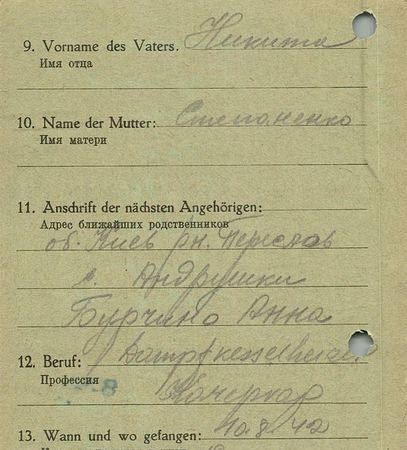 9. Vorname des Vaters. Никита
Имя отца
10. Name der Mutter: Степаненко
Имя матери
11. Anschrift der nächsten Angehörigen:
Адрес ближайших родственников
об. Киев рн. Переслав
с. Андрушки
Бурчино Анна
12. Beruf: Dampfkesselheizer
Профессия
Кочергар
13. Wann und wo gefangen: